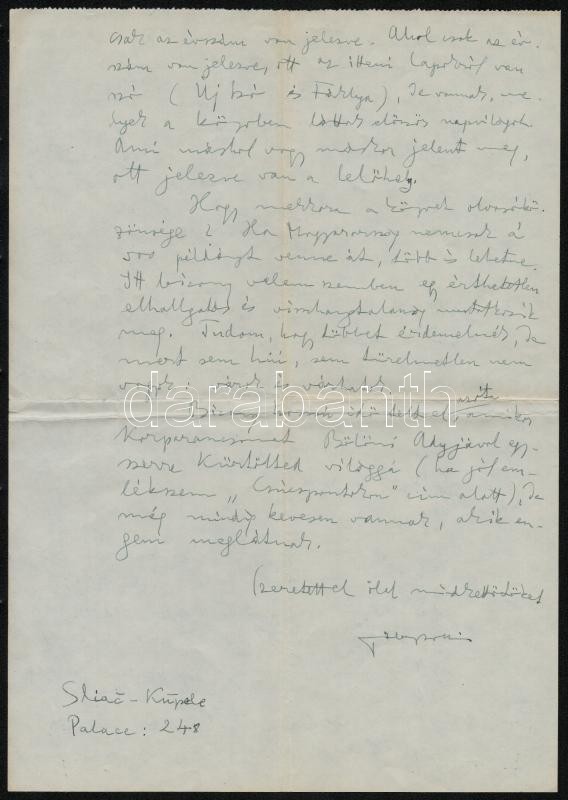 csak az évszám van jelezve. Ahol csak az év-
szám van jelezve, ott az itteni lapokról van
szó (Uj Szó és Fáklya), de vannak, me-
lyek a könyvben láttak először napvilágot.
Ami máshol vagy máskor jelent meg,
ott jelezve van a lelőhely.
Hogy mekkora a könyvek olvasókö-
zönsége? Ha Magyarország nemcsak
példányt venne át, több is lehetne.
Itt bizony velem szemben egy érthetetlen
elhallgatás és visszhangtalanság mutatkozik
meg. Tudom, hogy többet érdemelnék, de
mert sem hiú, sem türelmetlen nem
vagyok: várok és várhatok.
Bizony idő telt el azóta, amikor
Korparancsomat Bölöni Adyjával egy-
szerre kürtölted világgá (ha jól em-
lékszem „Csúcspontokon" cim alatt), de
még mindig kevesen vannak, akik en-
gem meglátnak.
Szeretettel ölel mindkettőtöket
Sliač - Kúpele
Palace: 248
darabanth